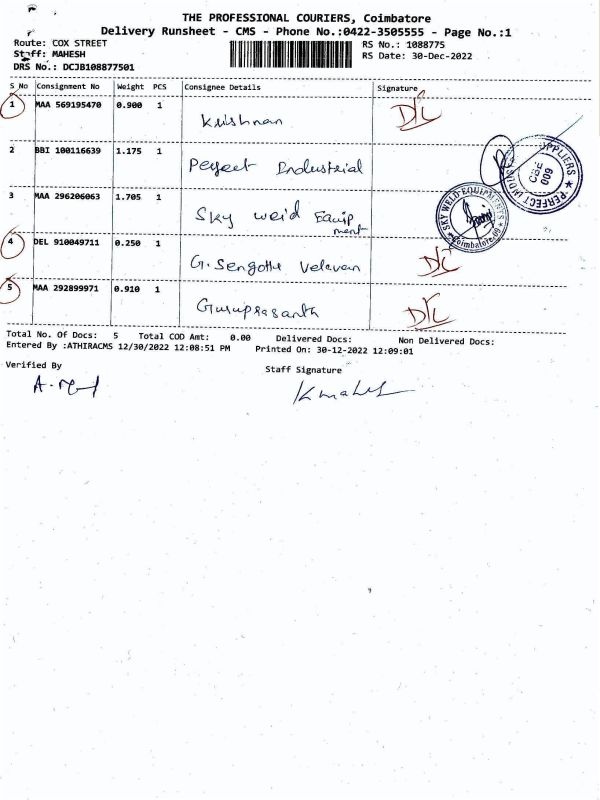 THE PROFESSIONAL COURIERS, Coimbatore
Delivery Runsheet - CMS - Phone No.:0422-3505555 - Page No.:1
Route: COX STREET RS No.: 1088775
Staff: MAHESH RS Date: 30-Dec-2022
DRS No.: DCJB108877501
S No Consignment No Weight PCS Consignee Details Signature
1 MAA 569195470 0.900 1 Krishnan D/C
2 BBI 100116639 1.175 1 Perfect Industrial
PERFECT SUPPLIERS CBE 009
3 MAA 296206063 1.705 1 Sky weld Equip
ment
SKY WELD EQUIPMENTS Coimbatore-09
4 DEL 910049711 0.250 1 G. Sengottu Velavan D/C
5 MAA 292899971 0.910 1 Guruprasanth D/C
Total No. Of Docs: 5 Total COD Amt: 0.00 Delivered Docs: Non Delivered Docs:
Entered By :ATHIRACMS 12/30/2022 12:08:51 PM Printed On: 30-12-2022 12:09:01
Verified By Staff Signature
K mahesh